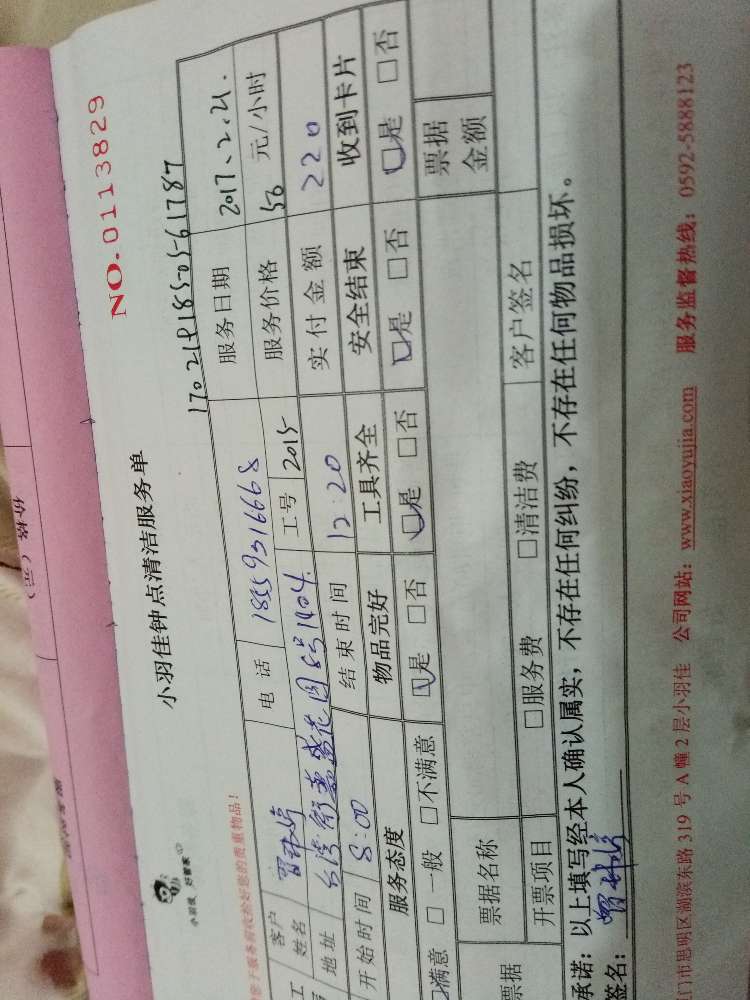 NO.0113829
小羽佳 好管家
小羽佳钟点清洁服务单
1702121185-05-61787
您的贵重物品!
客户姓名 电话 18559316668 服务日期 2017、2.21.
地址 台湾街 花园8号1404. 工号 2015 服务价格 50 元/小时
开始时间 8:00 结束时间 12:20 实付金额 220
服务态度 物品完好 工具齐全 安全结束 收到卡片
满意 □一般 □不满意 □是 □否 □是 □否 □是 □否 □是 □否
票据 票据名称 票据金额
开票项目 □服务费 □清洁费 客户签名
承诺:以上填写经本人确认属实,不存在任何纠纷,不存在任何物品损坏。
签名:
门市思明区湖滨东路 319 号 A 幢 2 层小羽佳 公司网站:www.xiaoyujia.com 服务监督热线:0592-5888123
价格(元)